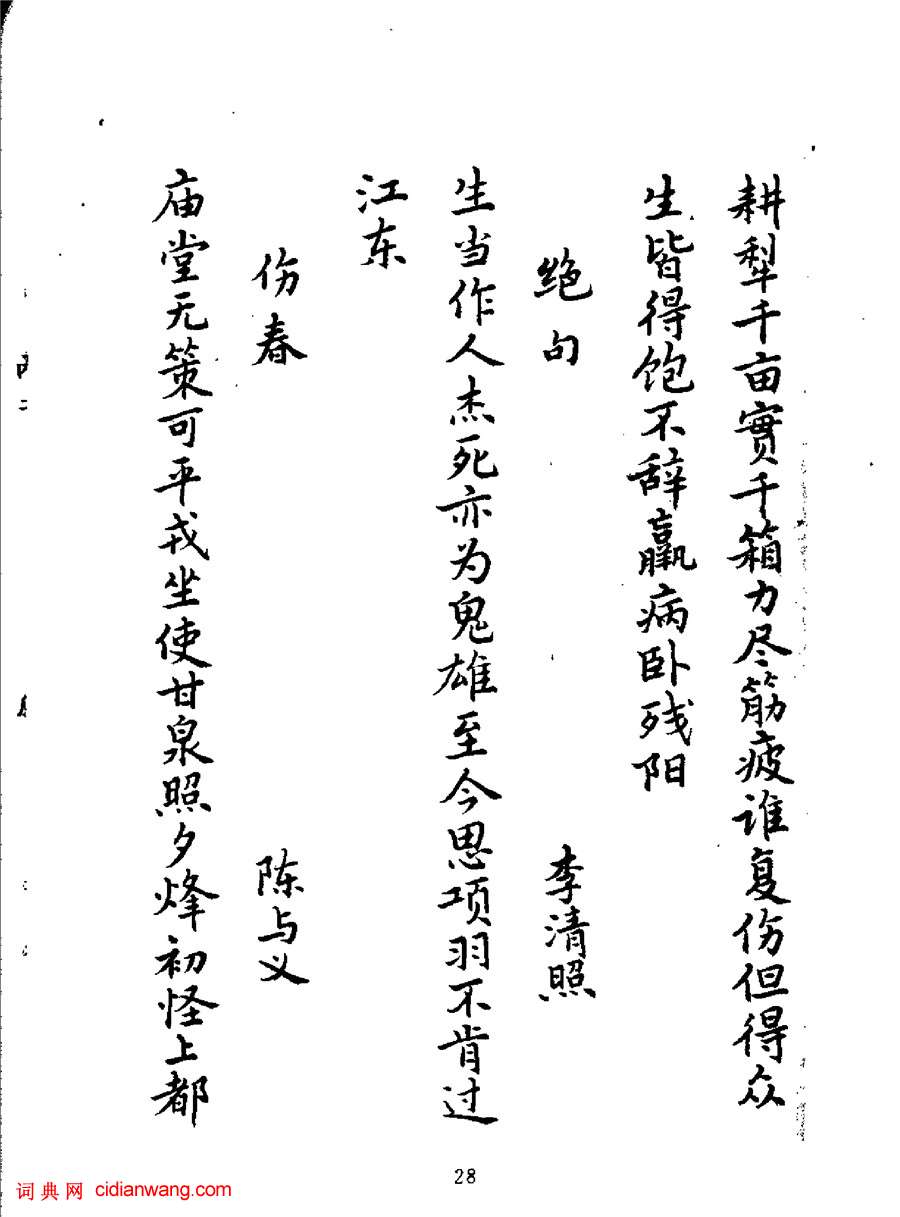 耕犁千亩實千箱力尽筋疲谁复伤但得众
生皆得饱不辞羸病卧残阳
绝句 李清照
生当作人杰死亦为鬼雄至今思项羽不肯过
江东
伤春 陈与义
庙堂无策可平戎坐使甘泉照夕烽初怪上都
28
词典网 cidianwang.com